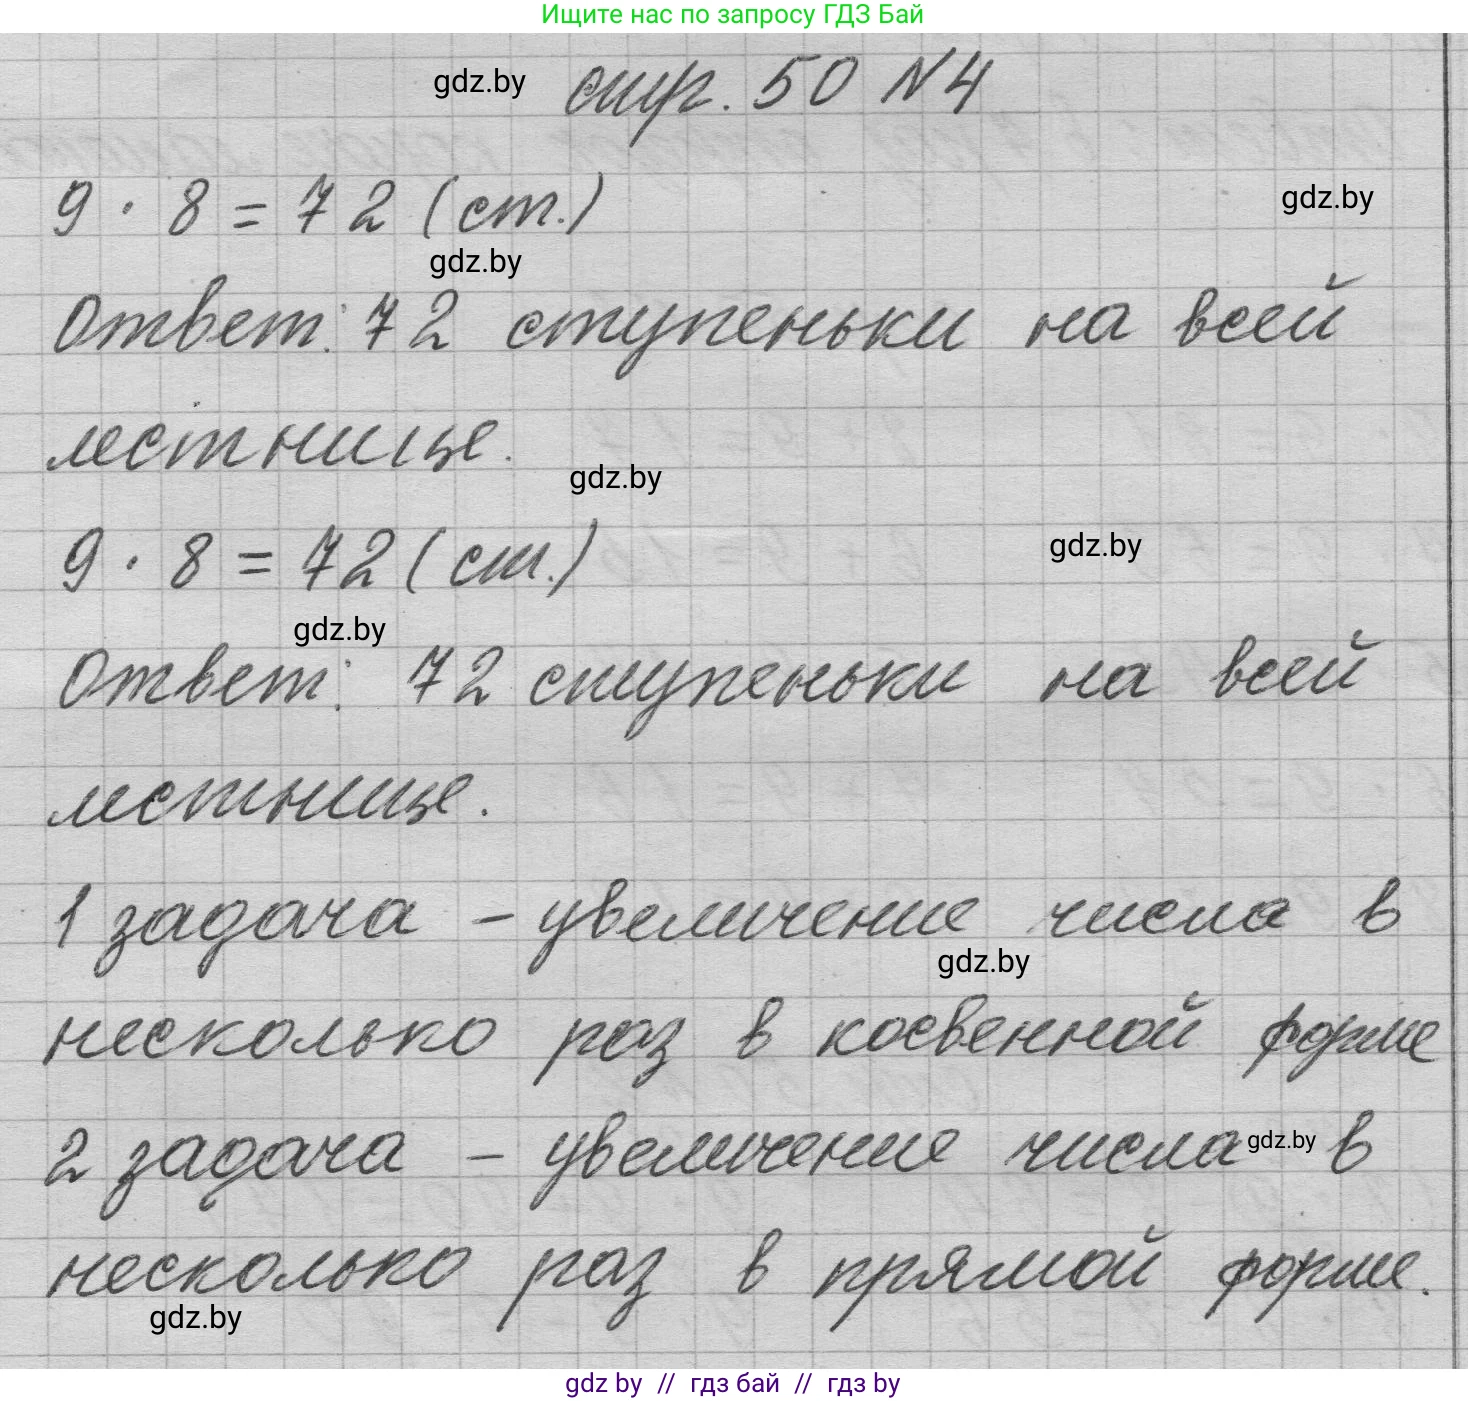 Ищите нас по запросу ГДЗ Бай
gdz.by стр. 50 №4
9 · 8 = 72 (ст.) gdz.by
gdz.by
Ответ: 72 ступеньки на всей
лестнице.
gdz.by
9 · 8 = 72 (ст.) gdz.by
gdz.by
Ответ: 72 ступеньки на всей
лестнице.
1 задача – увеличение числа в
gdz.by
несколько раз в косвенной форме
2 задача – увеличение числа gdz.by в
несколько раз в прямой форме.
gdz.by
gdz by // гдз бай // гдз by